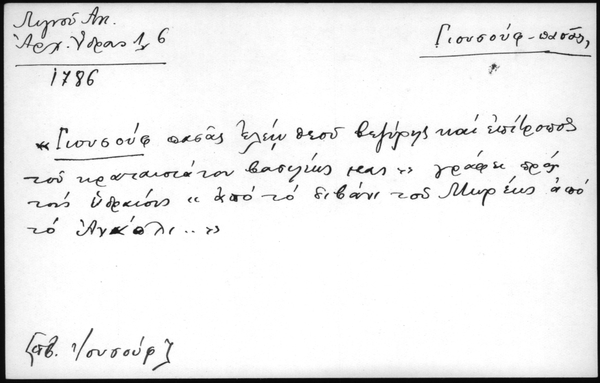 Λιγνοῦ Αν.
Ἀρχ. Ὕδρας 1, 6
Γιουσούφ-πασᾶς,
1786
«Γιουσούφ πασᾶς ἐλέῳ θεοῦ βεζύρης καί ἐπίτροπος
τοῦ κραταιοτάτου βασιλέως μας» γράφει πρός
τούς Ὑδραίους «ἀπό τό διβάνι τοῦ Μωρέως ἀπό
τό Ἀνάπλι..»
[πβ. Ἰουσούφ]